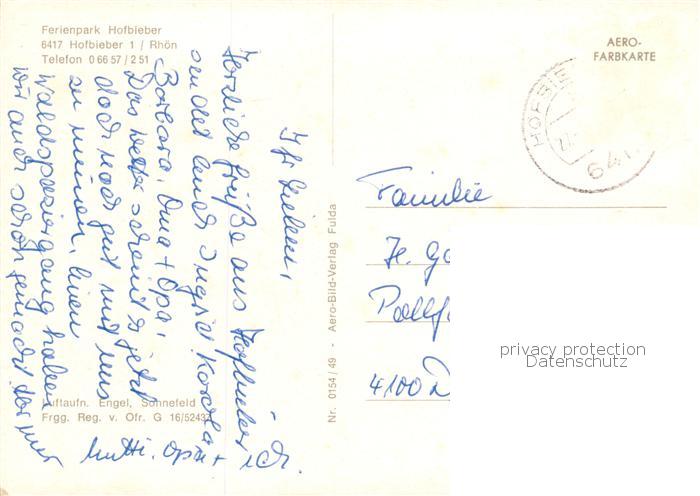 Ferienpark Hofbieber
6417 Hofbieber 1 / Rhön
Telefon 0 66 57 / 2 51
AERO-
FARBKARTE
HOFBIE
641
Ihr Lieben,
Herzliche Grüße aus Hofbieber
sendet euch Ingrid
Barbara Oma + Opa,
Das Wetter scheint jetzt
doch noch gut mit uns
zu meinen, einen
Waldspaziergang haben
wir auch schon gemacht
Mutti. Opa +
ich.
Familie
H. Go
4100 D
Nr. 0154/49 - Aero-Bild-Verlag Fulda
Luftaufn. Engel, Sonnefeld
Frgg. Reg. v. Ofr. G 16/5243
privacy protection
Datenschutz